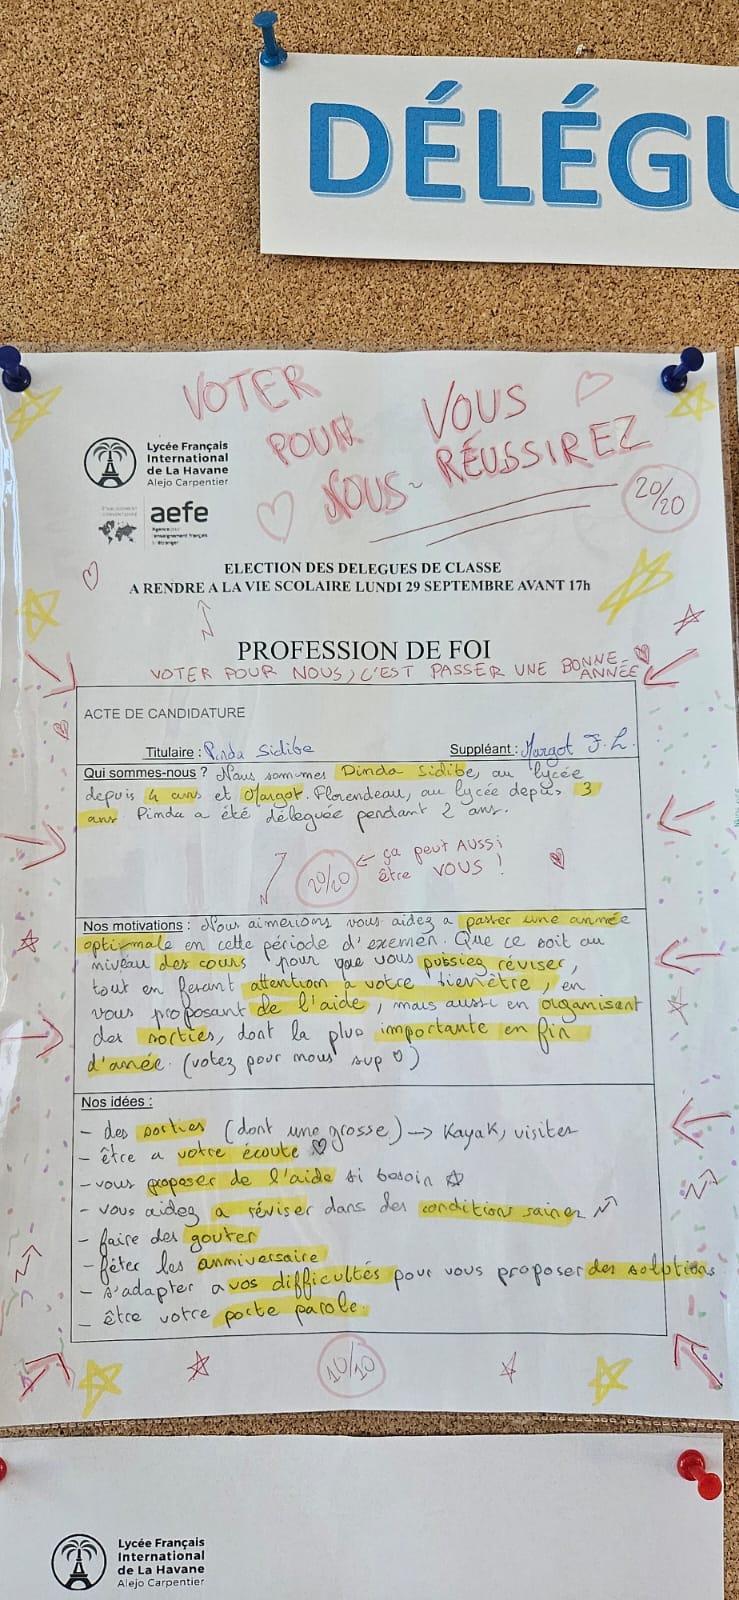 DÉLÉGU
VOTER
POUR
NOUS
VOUS
RÉUSSIREZ
20/20
Lycée Français
International
de La Havane
Alejo Carpentier
aefe
Agence pour
l'enseignement français
à l'étranger
ELECTION DES DELEGUES DE CLASSE
A RENDRE A LA VIE SCOLAIRE LUNDI 29 SEPTEMBRE AVANT 17h
PROFESSION DE FOI
VOTER POUR NOUS, C'EST PASSER UNE BONNE
ANNÉE
ACTE DE CANDIDATURE
Titulaire : Pinda Sidibe Suppléant : Margot F. L.
Qui sommes-nous ? Nous sommes Pinda Sidibe, au lycée
depuis 4 ans et Margot. Florendeau, au lycée depuis 3
ans. Pinda a été déleguée pendant 2 ans.
20/20 ← ça peut AUSSi
être VOUS !
Nos motivations : Nous aimerions vous aidez a passer une année
optimale en cette période d'examen. Que ce soit au
niveau des cours pour que vous puissiez réviser,
tout en ferant attention a votre bienêtre, en
vous proposant de l'aide, mais aussi en organisant
des sorties, dont la plus importante en fin
d'anée. (votez pour nous svp ♡)
Nos idées :
- des sorties (dont une grosse) → Kayak, visites
- être a votre écoute ♡
- vous proposer de l'aide si besoin ☆
- vous aidez a réviser dans des conditions saines
- faire des gouter
- fêter les anniversaire
- s'adapter a vos difficultés pour vous proposer des solutions
- être votre porte parole.
10/10
Lycée Français
International
de La Havane
Alejo Carpentier